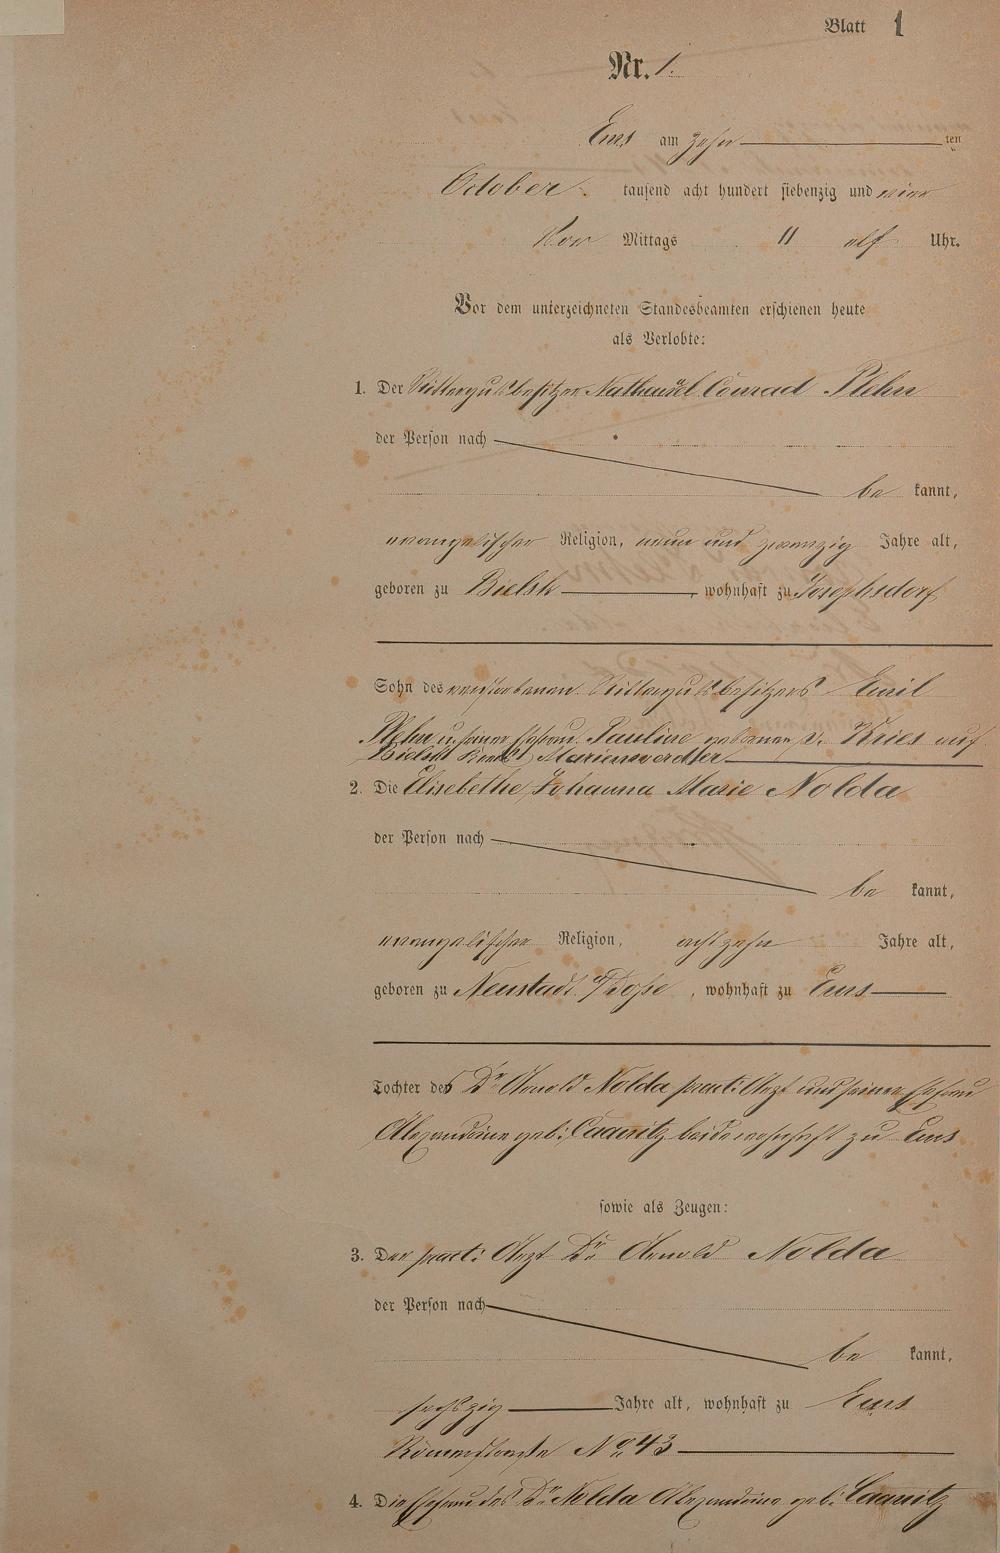 Blatt 1
Nr. 1.
Ems am zehn ten
October tausend acht hundert siebenzig und vier
Vor Mittags 11 elf Uhr.
Vor dem unterzeichneten Standesbeamten erschienen heute
als Verlobte:
1. Der Rittergutsbesitzer Nathanael Conrad Plehn
der Person nach
be kannt,
evangelischer Religion, neun und zwanzig Jahre alt,
geboren zu Bielsk, wohnhaft zu Josephsdorf
Sohn des verstorbenen Rittergutsbesitzers Emil
Plehn u. seiner Ehefrau Pauline geborener v. Kries auf
Bielsk Marienwerder
2. Die Elisebethe Johanna Marie Nolda
der Person nach
be kannt,
evangelischer Religion, achtzehn Jahre alt,
geboren zu Neustadt a/Dosse, wohnhaft zu Ems
Tochter des Dr Arnold Nolda pract: Arzt und seiner Ehefrau
Alexandrine geb: beide wohnhaft zu Ems
sowie als Zeugen:
3. Der pract: Arzt Dr Arnold Nolda
der Person nach
be kannt,
sechszig Jahre alt, wohnhaft zu Ems
Römerstraße No 43
4. Die Ehefrau des Dr. Nolda Alexandrine geb: